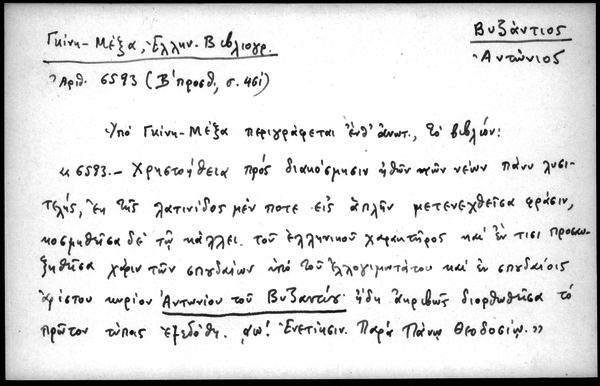 Γκίνη-Μέξα, Ἑλλην. Βιβλιογρ.
Βυζάντιος
Ἀντώνιος
Ἀριθ. 6593 (Β΄ προσθ., σ. 461)
Ὑπὸ Γκίνη-Μέξα περιγράφεται ἐνθ' ἀνωτ., τὸ βιβλίον:
« 6593.— Χρηστοήθεια πρὸς διακόσμησιν ἠθῶν τῶν νέων πάνυ λυσι-
τελής, ἐκ τῆς λατινίδος μέν ποτε εἰς ἁπλῆν μετενεχθεῖσα φράσιν,
κοσμηθεῖσα δὲ τῷ κάλλει τοῦ ἑλληνικοῦ χαρακτῆρος καὶ ἔν τισι προσαυ-
ξηθεῖσα χάριν τῶν σπουδαίων ὑπὸ τοῦ ἐλλογιμωτάτου καὶ ἐν σπουδαίοις
ἀρίστου κυρίου Ἀντωνίου τοῦ Βυζαντίου ἤδη ἀκριβῶς διορθωθεῖσα τὸ
πρῶτον τύποις ἐξεδόθη. Ἐνετίησιν. Παρὰ Πάνῳ Θεοδοσίῳ. »